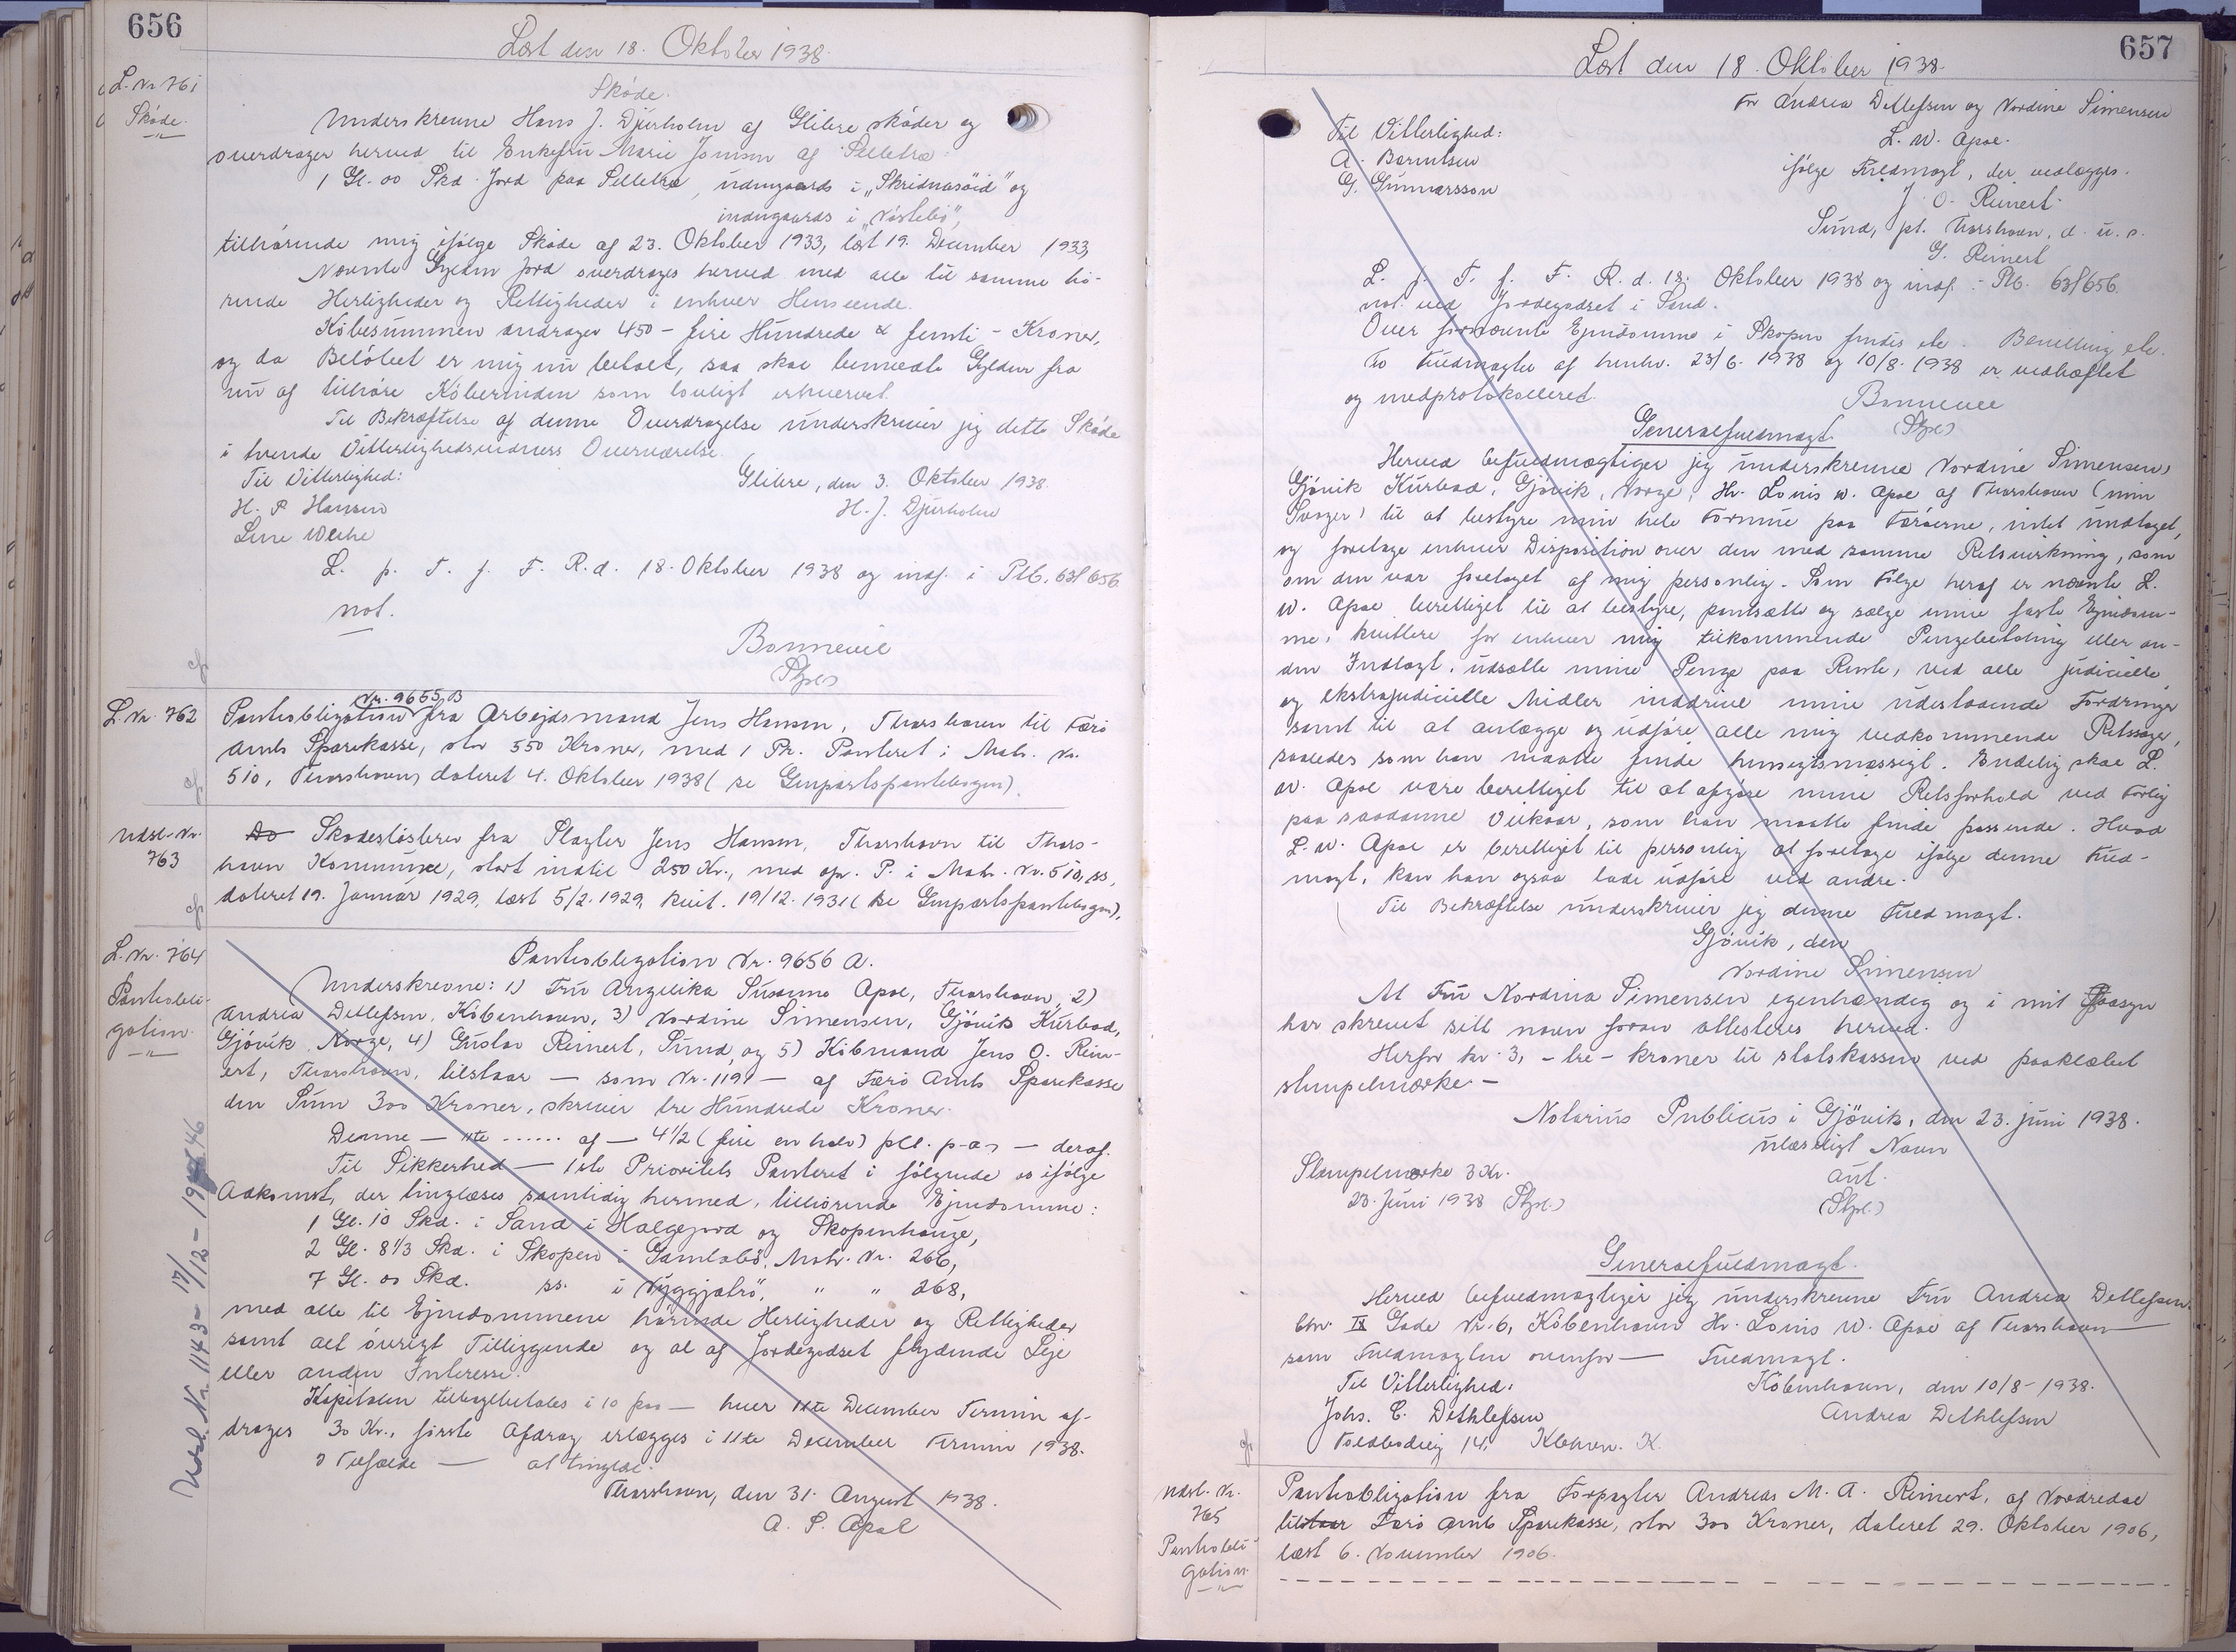 656
Læst den 18. Oktober 1938.
L. Nr 761
Skøde.
Skøde.
Underskrevne Hans J. Djurholm af Glibre skøder og
overdrager herved til Enkefru Marie Joensen af Selletræ:
1 Gl. 00 Skd. Jord paa Selletræ, udengaards i „Skridnasøid" og
indengaards i „Nóstebø",
tilhørende mig ifølge Skøde af 23. Oktober 1933, læst 19. December 1933,
Nævnte Gylden Jord overdrages herved med alle til samme hø-
rende Herligheder og Rettigheder i enhver Henseende.
Købesummen andrager 450 - fire Hundrede & femti - Kroner,
og da Beløbet er mig nu betalt, saa skal bemeldte Gylden fra
nu af tilhøre Køberinden som lovligt erhvervet.
Til Bekræftelse af denne Overdragelse underskriver jeg dette Skøde
i tvende Vitterlighedsvidners Overværelse.
Til Vitterlighed:
Glibre, den 3. Oktober 1938.
H. P. Hansen
H. J. Djurholm
Line Weihe
L. p. T. f. F. R. d. 18. Oktober 1938 og indf. i Ptb. 63f 656
not.
Bonnevie
(Stpl)
L. Nr. 762
Nr. 9655 B
Pantobligation fra Arbejdsmand Jens Hansen, Thorshavn til Færø
Amts Sparekasse, stor 550 Kroner, med 1 Pr. Panteret i Matr. Nr.
510, Thorshavn, dateret 4. Oktober 1938 (se Genpartspantebogen).
Udsl. Nr.
763
Do Skadesløsbrev fra Slagter Jens Hansen, Thorshavn til Thors-
havn Kommune, stort indtil 250 Kr., med opr. P. i Matr. Nr. 510, ss,
dateret 19. Januar 1929, læst 5/2. 1929, kvit. 19/12. 1931 (se Genpartspantebogen).
L. Nr. 764
Pantobli-
gation.
Pantobligation Nr. 9656 A.
Underskrevne: 1) Fru Angelika Susanna Apol, Thorshavn, 2)
Andrea Detlefsen, København, 3) Nordine Simensen, Gjövik Kurbad,
Gjövik Norge, 4) Gustav Reinert, Sund, og 5) Købmand Jens O. Rein-
ert, Thorshavn, tilstaar — som Nr. 1191 — af Færø Amts Sparekasse
den Sum 300 Kroner, skriver tre Hundrede Kroner.
Denne — 11te ...... af — 4½ (fire en halv) pCt. p.a. — deraf.
Til Sikkerhed — 1ste Prioritets Panteret i følgende os ifølge
Adkomst, der tinglæses samtidig hermed, tilhørende Ejendomme:
1 Gl. 10 Skd. i Sand i Halgejord og Skopenhauge,
2 Gl. 8 1/3 Skd. i Skopen i Gamlabø, Matr. Nr. 266,
7 Gl. 00 Skd. ss. i Nyggjatrø, " " 268,
med alle til Ejendommene hørende Herligheder og Rettigheder
samt alt øvrigt Tilliggende og al af Jordegodset flydende Leje
eller anden Interesse.
Kapitalen tilbagebetales i 10 paa — hver 11te December Termin af-
drages 30 Kr., første Afdrag erlægges i 11te December Termin 1938.
I Tilfælde — at tinglæs.
Thorshavn, den 31. August 1938.
A. S. Apol
Udsl. Nr. 1143 - 17/12 - 1946
657
Læst den 18. Oktober 1938.
For Andrea Detlefsen og Nordine Simensen
Til Vitterlighed:
L. W. Apol.
A. Berntsen
ifølge Fuldmagt, der vedlægges.
G. Gunnarsson
J. O. Reinert.
Sund, pt. Thorshavn, d. u. s.
G. Reinert
L. p. T. f. F. R. d. 18. Oktober 1938 og indf. i Ptb. 63f 656.
not. ved Jordegodset i Sand.
Over fornævnte Ejendomme i Skopen findes ik. Benelling etc.
To Fuldmagter af henhv. 23/6. 1938 og 10/8. 1938 er vedhæftet
og medprotokolleret.
Bonnevie
(Stpl)
Generalfuldmagt.
Herved befuldmægtiger jeg underskrevne Nordine Simensen,
Gjövik Kurbad, Gjövik, Norge, Hr. Louis W. Apol af Thorshavn (min
Svoger) til at bestyre min hele Formue paa Færøerne, intet undtaget,
og foretage enhver Disposition over den med samme Retsvirkning, som
om den var foretaget af mig personlig. Som Følge heraf er nævnte L.
W. Apol berettiget til at bestyre, pantsætte og sælge mine faste Ejendom-
me, kvittere for enhver mig tilkommende Pengebetaling eller an-
den Indtægt, udsætte mine Penge paa Rente, ved alle judicielle
og ekstrajudicielle Midler inddrive mine udestaaende Fordringer
samt til at anlægge og udføre alle mig vedkommende Retssager,
saaledes som han maatte finde hensigtsmæssigt. Endelig skal L.
W. Apol være berettiget til at afgøre mine Retsforhold ved Forlig
paa saadanne Vilkaar, som han maatte finde passende. Hvad
L. W. Apol er berettiget til personlig at foretage ifølge denne Fuld-
magt, kan han ogsaa lade udføre ved andre.
Til Bekræftelse underskriver jeg denne Fuldmagt.
Gjövik, den
Nordine Simensen
At Fru Nordina Simensen egenhændig og i mit paasyn
har skrevet sitt navn foran attesteres herved.
Herfor kr. 3, - tre - kroner til statskassen ved paaklæbet
stempelmærke. -
Notarius Publicus i Gjövik, den 23. juni 1938.
ulæseligt Navn
aut.
Stempelmærke 3 Kr.
23. Juni 1938 (Stpl.)
(Stpl.)
Generalfuldmagt.
Herved befuldmægtiger jeg underskrevne Fru Andrea Detlefsen,
Chr. IX Gade Nr. 6, København Hr. Louis W. Apol af Thorshavn —
som Fuldmagten ovenfor — Fuldmagt.
Til Vitterlighed:
København, den 10/8 - 1938.
Johs. C. Dethlefsen
Andrea Dethlefsen
Toldbodvej 14, Kbhvn. K.
Udsl. Nr.
765
Pantobli-
gation.
Pantobligation fra Forpagter Andreas M. A. Reinert, af Nordredal
til Færø Amts Sparekasse, stor 300 Kroner, dateret 29. Oktober 1906,
læst 6. November 1906.